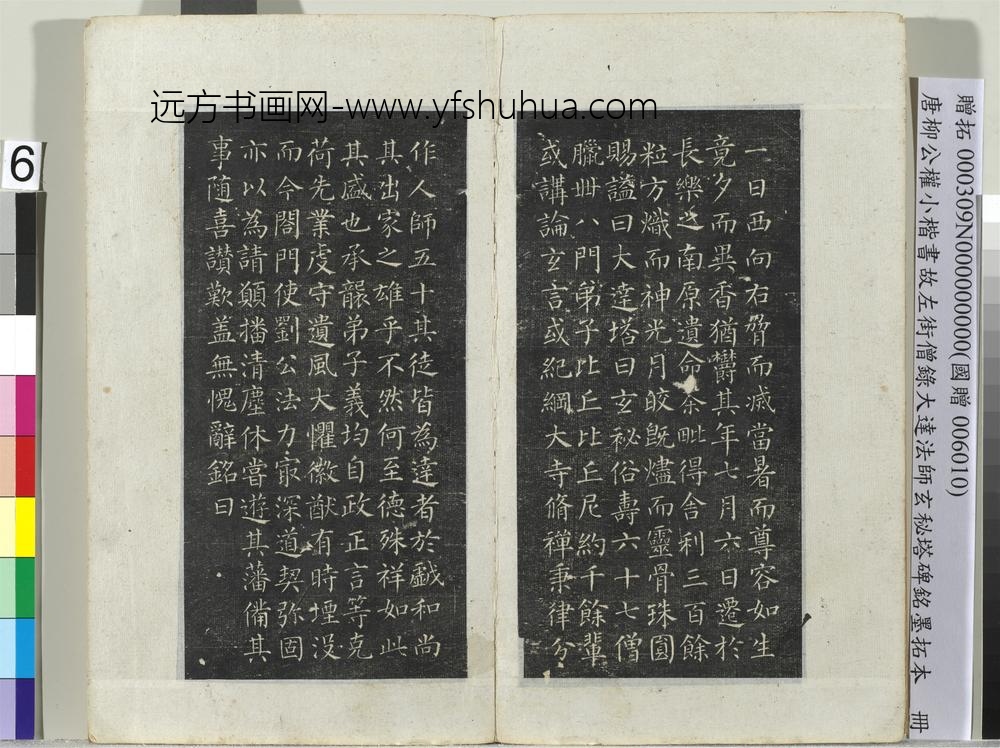 远方书画网-www.yfshuhua.com
6
贈拓 000309N000000000(國贈 006010)
唐柳公權小楷書故左街僧錄大達法師玄秘塔碑銘墨拓本 冊
一日西向右脅而滅當暑而尊容如生
竟夕而異香猶欝其年七月六日遷於
長樂之南原遺命荼毗得舍利三百餘
粒方熾而神光月皎旣燼而靈骨珠圓
賜謚曰大達塔曰玄秘俗壽六十七僧
臘卌八門弟子比丘比丘尼約千餘輩
或講論玄言或紀綱大寺脩禪秉律分
作人師五十其徒皆為達者於戲和尚
其出家之雄乎不然何至德殊祥如此
其盛也承襲弟子義均自政正言等克
荷先業虔守遺風大懼徽猷有時堙没
而今閤門使劉公法力㝡深道契弥固
亦以為請願播清塵休甞遊其藩備其
事随喜讃歎盖無愧辭銘曰